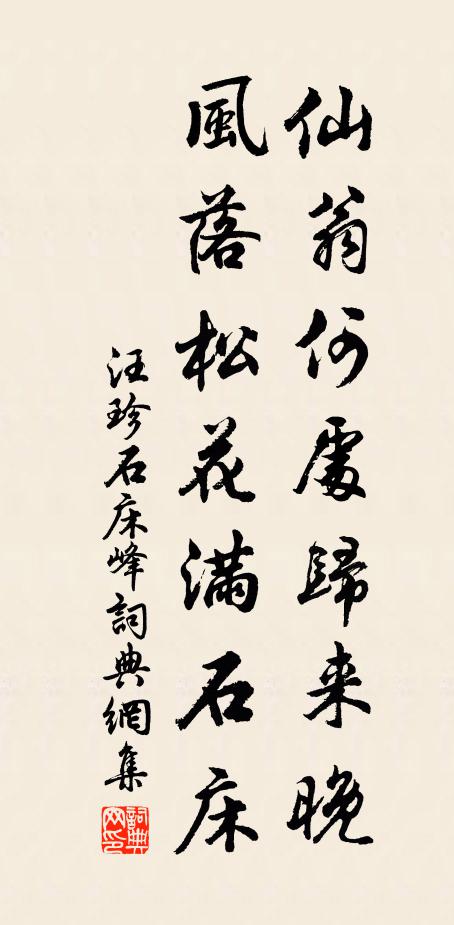 仙翁何處歸来晚
風落松花満石床
汪珍石床峰詞典網集
詞典网印